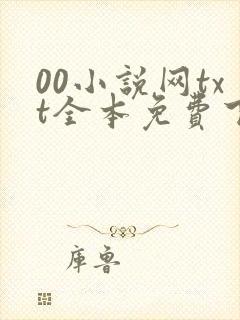 00小説网tx
t全本免費
库鲁